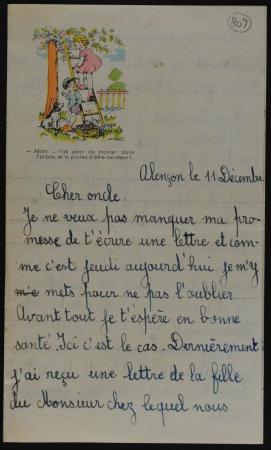 807
— Alors ... t'as peur de monter dans
l'arbre, et tu parles d'être aviateur !..
Alençon le 11 Décembre
Cher oncle.
Je ne veux pas manquer ma pro-
messe de t'écrire une lettre et com-
me c'est jeudi aujourd'hui je m'y
m'e mets pour ne pas l'oublier
Avant tout je t'espère en bonne
santé. Ici c'est le cas. Dernièrement
j'ai reçu une lettre de la fille
du Monsieur chez lequel nous